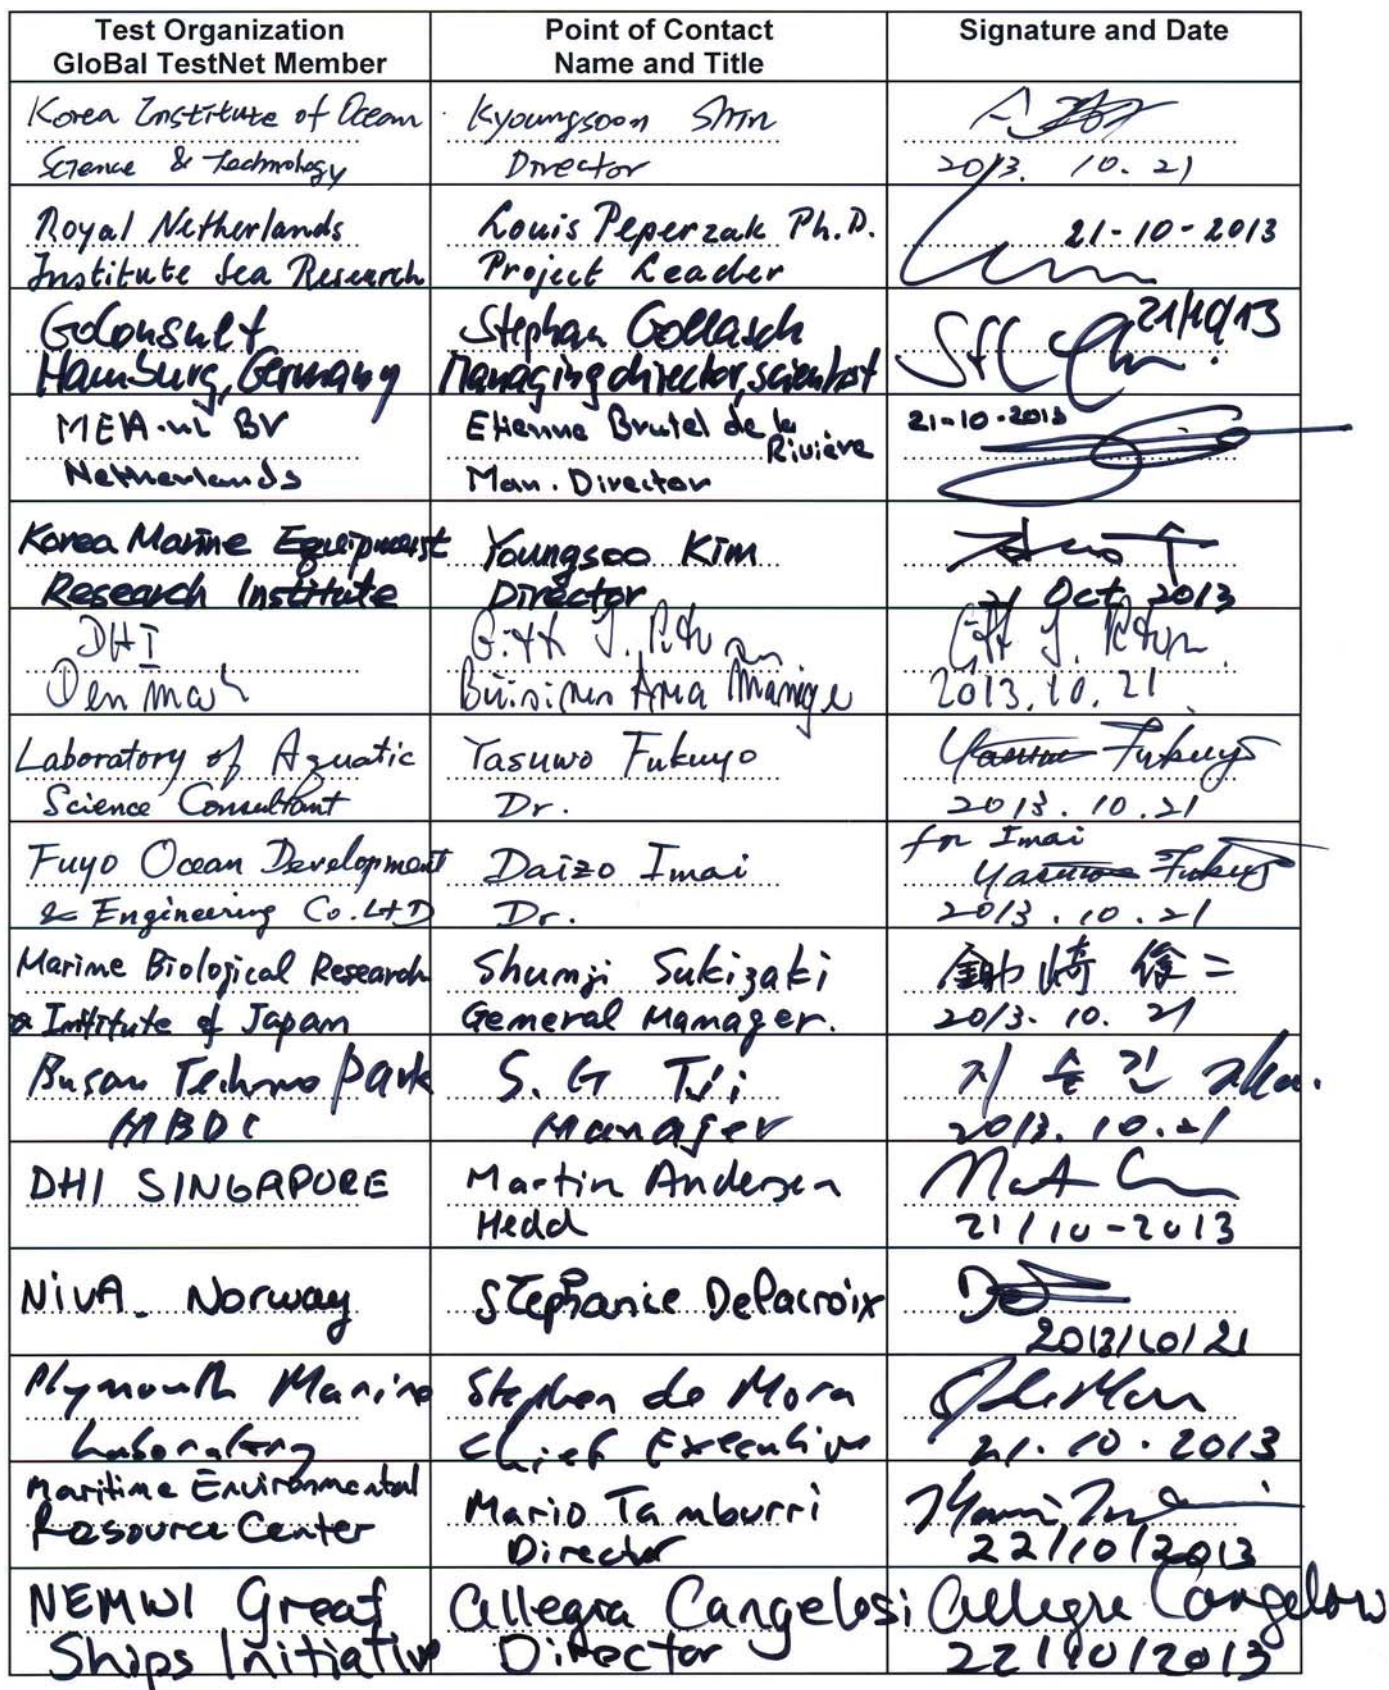 Test Organization
GloBal TestNet Member
Point of Contact
Name and Title
Signature and Date
Korea Institute of Ocean
Science & Technology
Kyoungsoon Shin
Director
2013. 10. 21
Royal Netherlands
Institute Sea Research
Louis Peperzak Ph.D.
Project Leader
21-10-2013
GoConsult
Hamburg, Germany
Stephan Gollasch
Managing director, scientist
21/10/13
MEA-nl BV
Netherlands
Etienne Brutel de la
Rivière
Man. Director
21-10-2013
Korea Marine Equipment
Research Institute
Youngsoo Kim
Director
21 Oct 2013
DHI
Denmark
Gitte I. Petersen
Business Area Manager
2013.10.21
Laboratory of Aquatic
Science Consultant
Yasuwo Fukuyo
Dr.
Yasuwo Fukuyo
2013.10.21
Fuyo Ocean Development
& Engineering Co. LTD
Daizo Imai
Dr.
for Imai
Yasuwo Fukuyo
2013.10.21
Marine Biological Research
Institute of Japan
Shunji Sukizaki
General Manager.
鋤崎 俊二
2013. 10. 21
Busan Techno Park
MBDC
S. G Ji
Manager
지 승 긴
2013. 10. 21
DHI SINGAPORE
Martin Andersen
Head
21/10-2013
NIVA - Norway
Stephanie Delacroix
2013/10/21
Plymouth Marine
Laboratory
Stephen de Mora
Chief Executive
21.10.2013
Maritime Environmental
Resource Center
Mario Tamburri
Director
22/10/2013
NEMWI Great
Ships Initiative
Allegra Cangelosi
Director
Allegra Cangelosi
22/10/2013